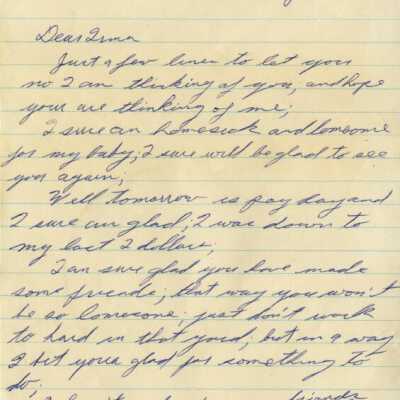 Dear Irma
Just a few lines to let you
no I am thinking of you, and hope
your are thinking of me;
I sure am homesick and lonesome
for my baby; I sure will be glad to see
you again;
Well tomorrow is pay day and
I sure am glad; I was down to
my last 2 dollars;
I am sure glad you have made
some friends; that way you won't
be so lonesome; just don't work
to hard in that yard, but in a way
I bet your glad for something to
do;
friends